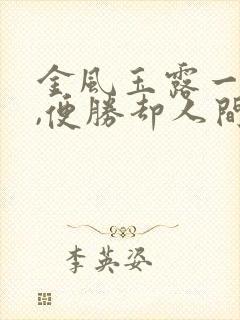 金風玉露一
,便勝却人間
李英姿